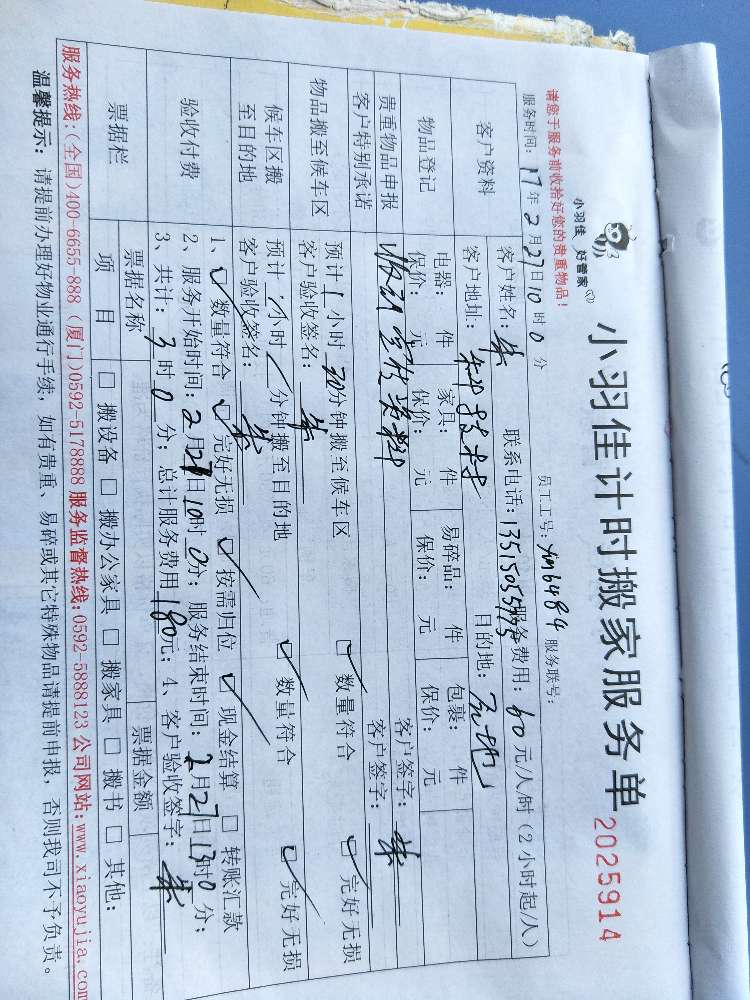 小羽佳 好管家
小羽佳计时搬家服务单
2025914
请您于服务前收拾好您的贵重物品！
员工工号： 服务联号：
服务时间：17年2月27日10时0分 服务费用：60元/人/时（2小时起/人）
客户资料
客户姓名：朱 联系电话：
客户地址： 目的地：
物品登记
电器： 件 家具： 件 易碎品： 件 包裹： 件
保价： 元 保价： 元 保价： 元 保价： 元
贵重物品申报 客户签字：
客户特别承诺 客户签字：朱
物品搬至候车区
预计1小时30分钟搬至候车区 数量符合 完好无损
客户验收签名：朱
候车区搬至目的地
预计 小时 分钟搬至目的地 数量符合 完好无损
客户验收签名：朱
验收付费
1、数量符合 完好无损 按需归位 现金结算 转账汇款
2、服务开始时间：2月27日10时0分；服务结束时间：2月27日13时0分；
3、共计：3时0分；总计服务费用180元；4、客户验收签字：朱
票据栏
票据名称 票据金额
项目 搬设备 搬办公家具 搬家具 搬书 其他：
服务热线：(全国)400-6655-888 (厦门)0592-5178888 服务监督热线：0592-5888123 公司网站：www.xiaoyujia.com
温馨提示：请提前办理好物业通行手续，如有贵重、易碎或其它特殊物品请提前申报，否则我司不予负责。